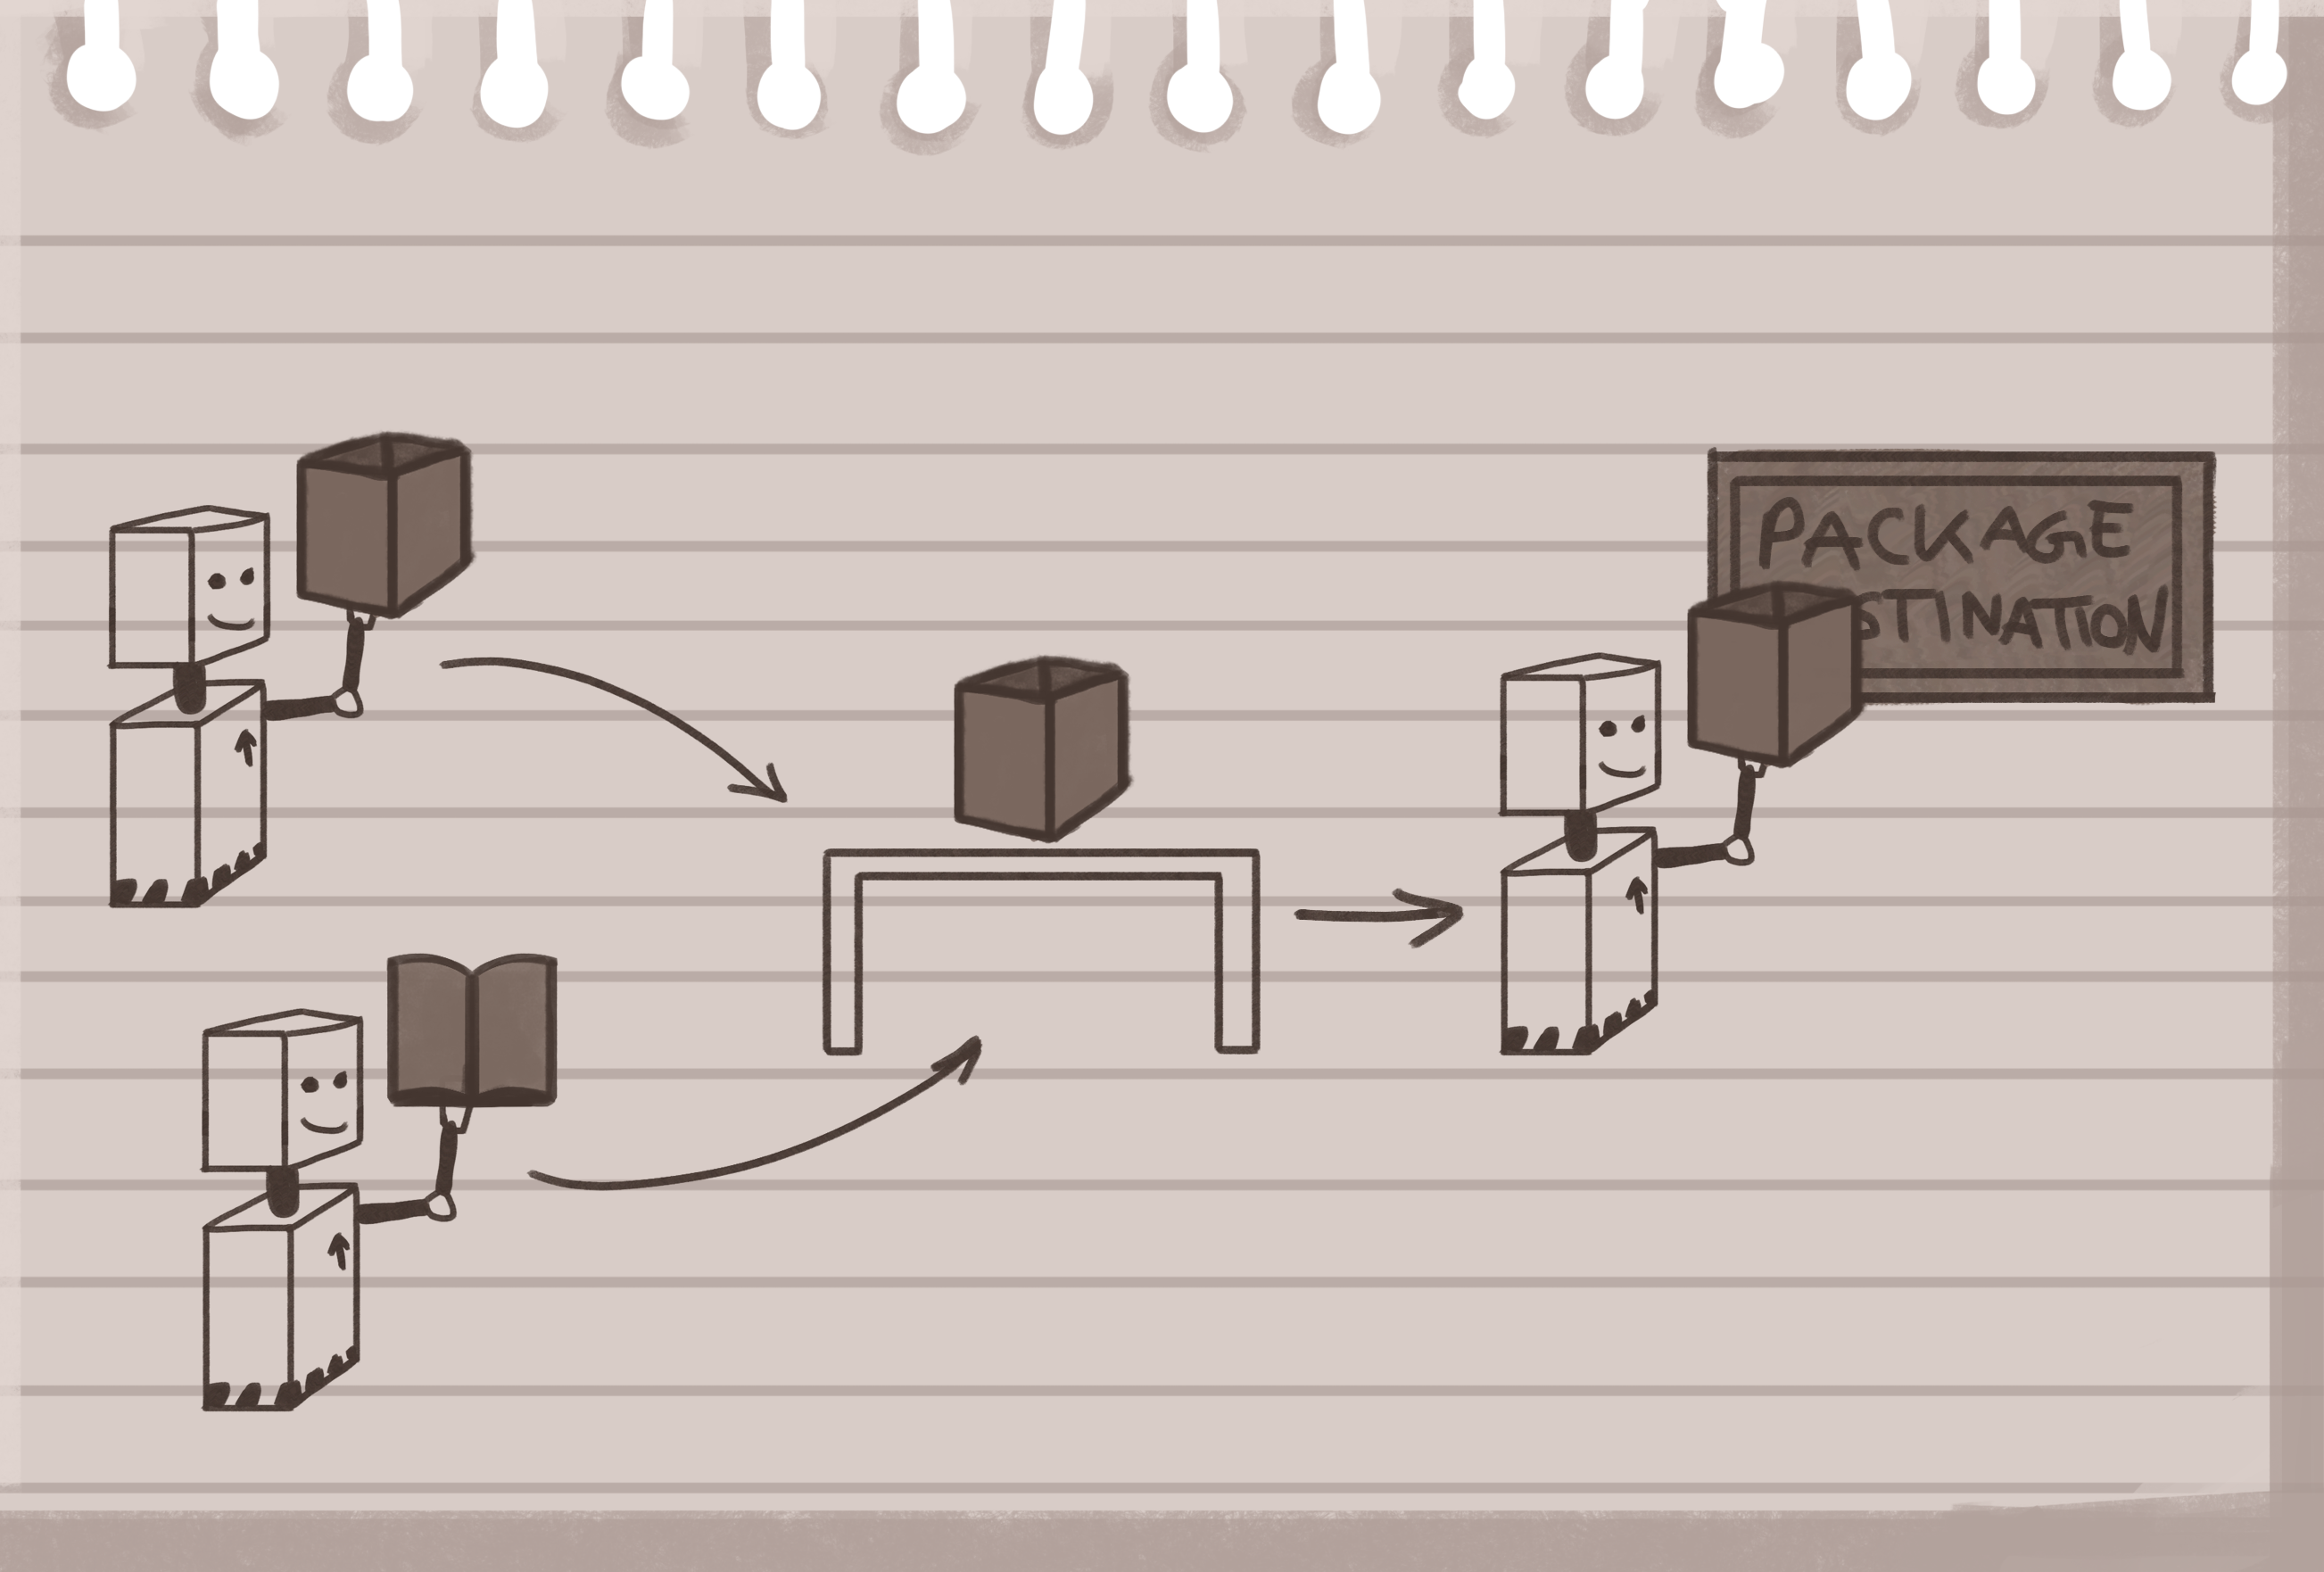 PACKAGE
STINATION